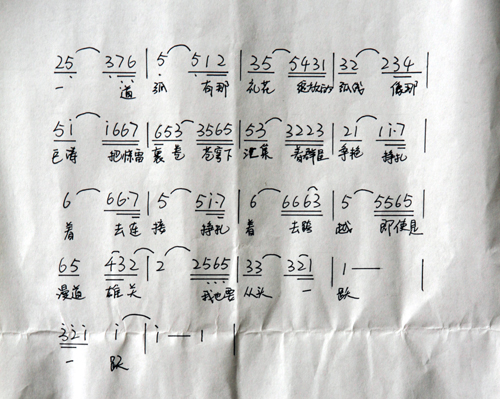 25 376 | 5 512 | 35 5431 | 32 234 |
一 道 弧 有那 礼花 弧线 像那
5i i667 | 653 3565 | 53 3223 | 21 1i·7 |
巨涛 把惊雷 裹卷 苍穹下 汇集 着群星 争艳 挣扎
6 66·7 | 5 5i·7 | 6 6663 | 5 5565 |
着 去连 接 挣扎 着 去跨 越 即使是
65 432 | 2 2565 | 33 321 | 1 — |
漫道 雄关 我也要 从头 一 跃
321 i | i — 1 |
一 跃